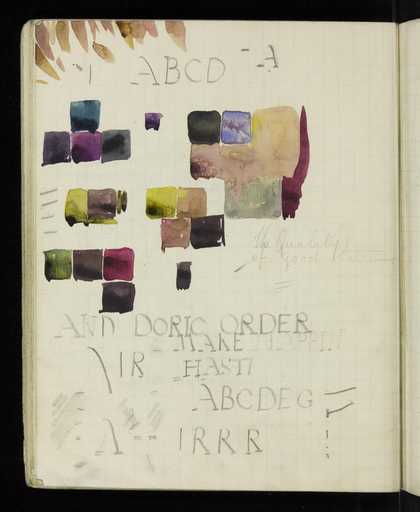 A
ABCD
The Quality
of good
AND DORIC ORDER
MAKE
IR HASTI
ABCDEG
A IRRR